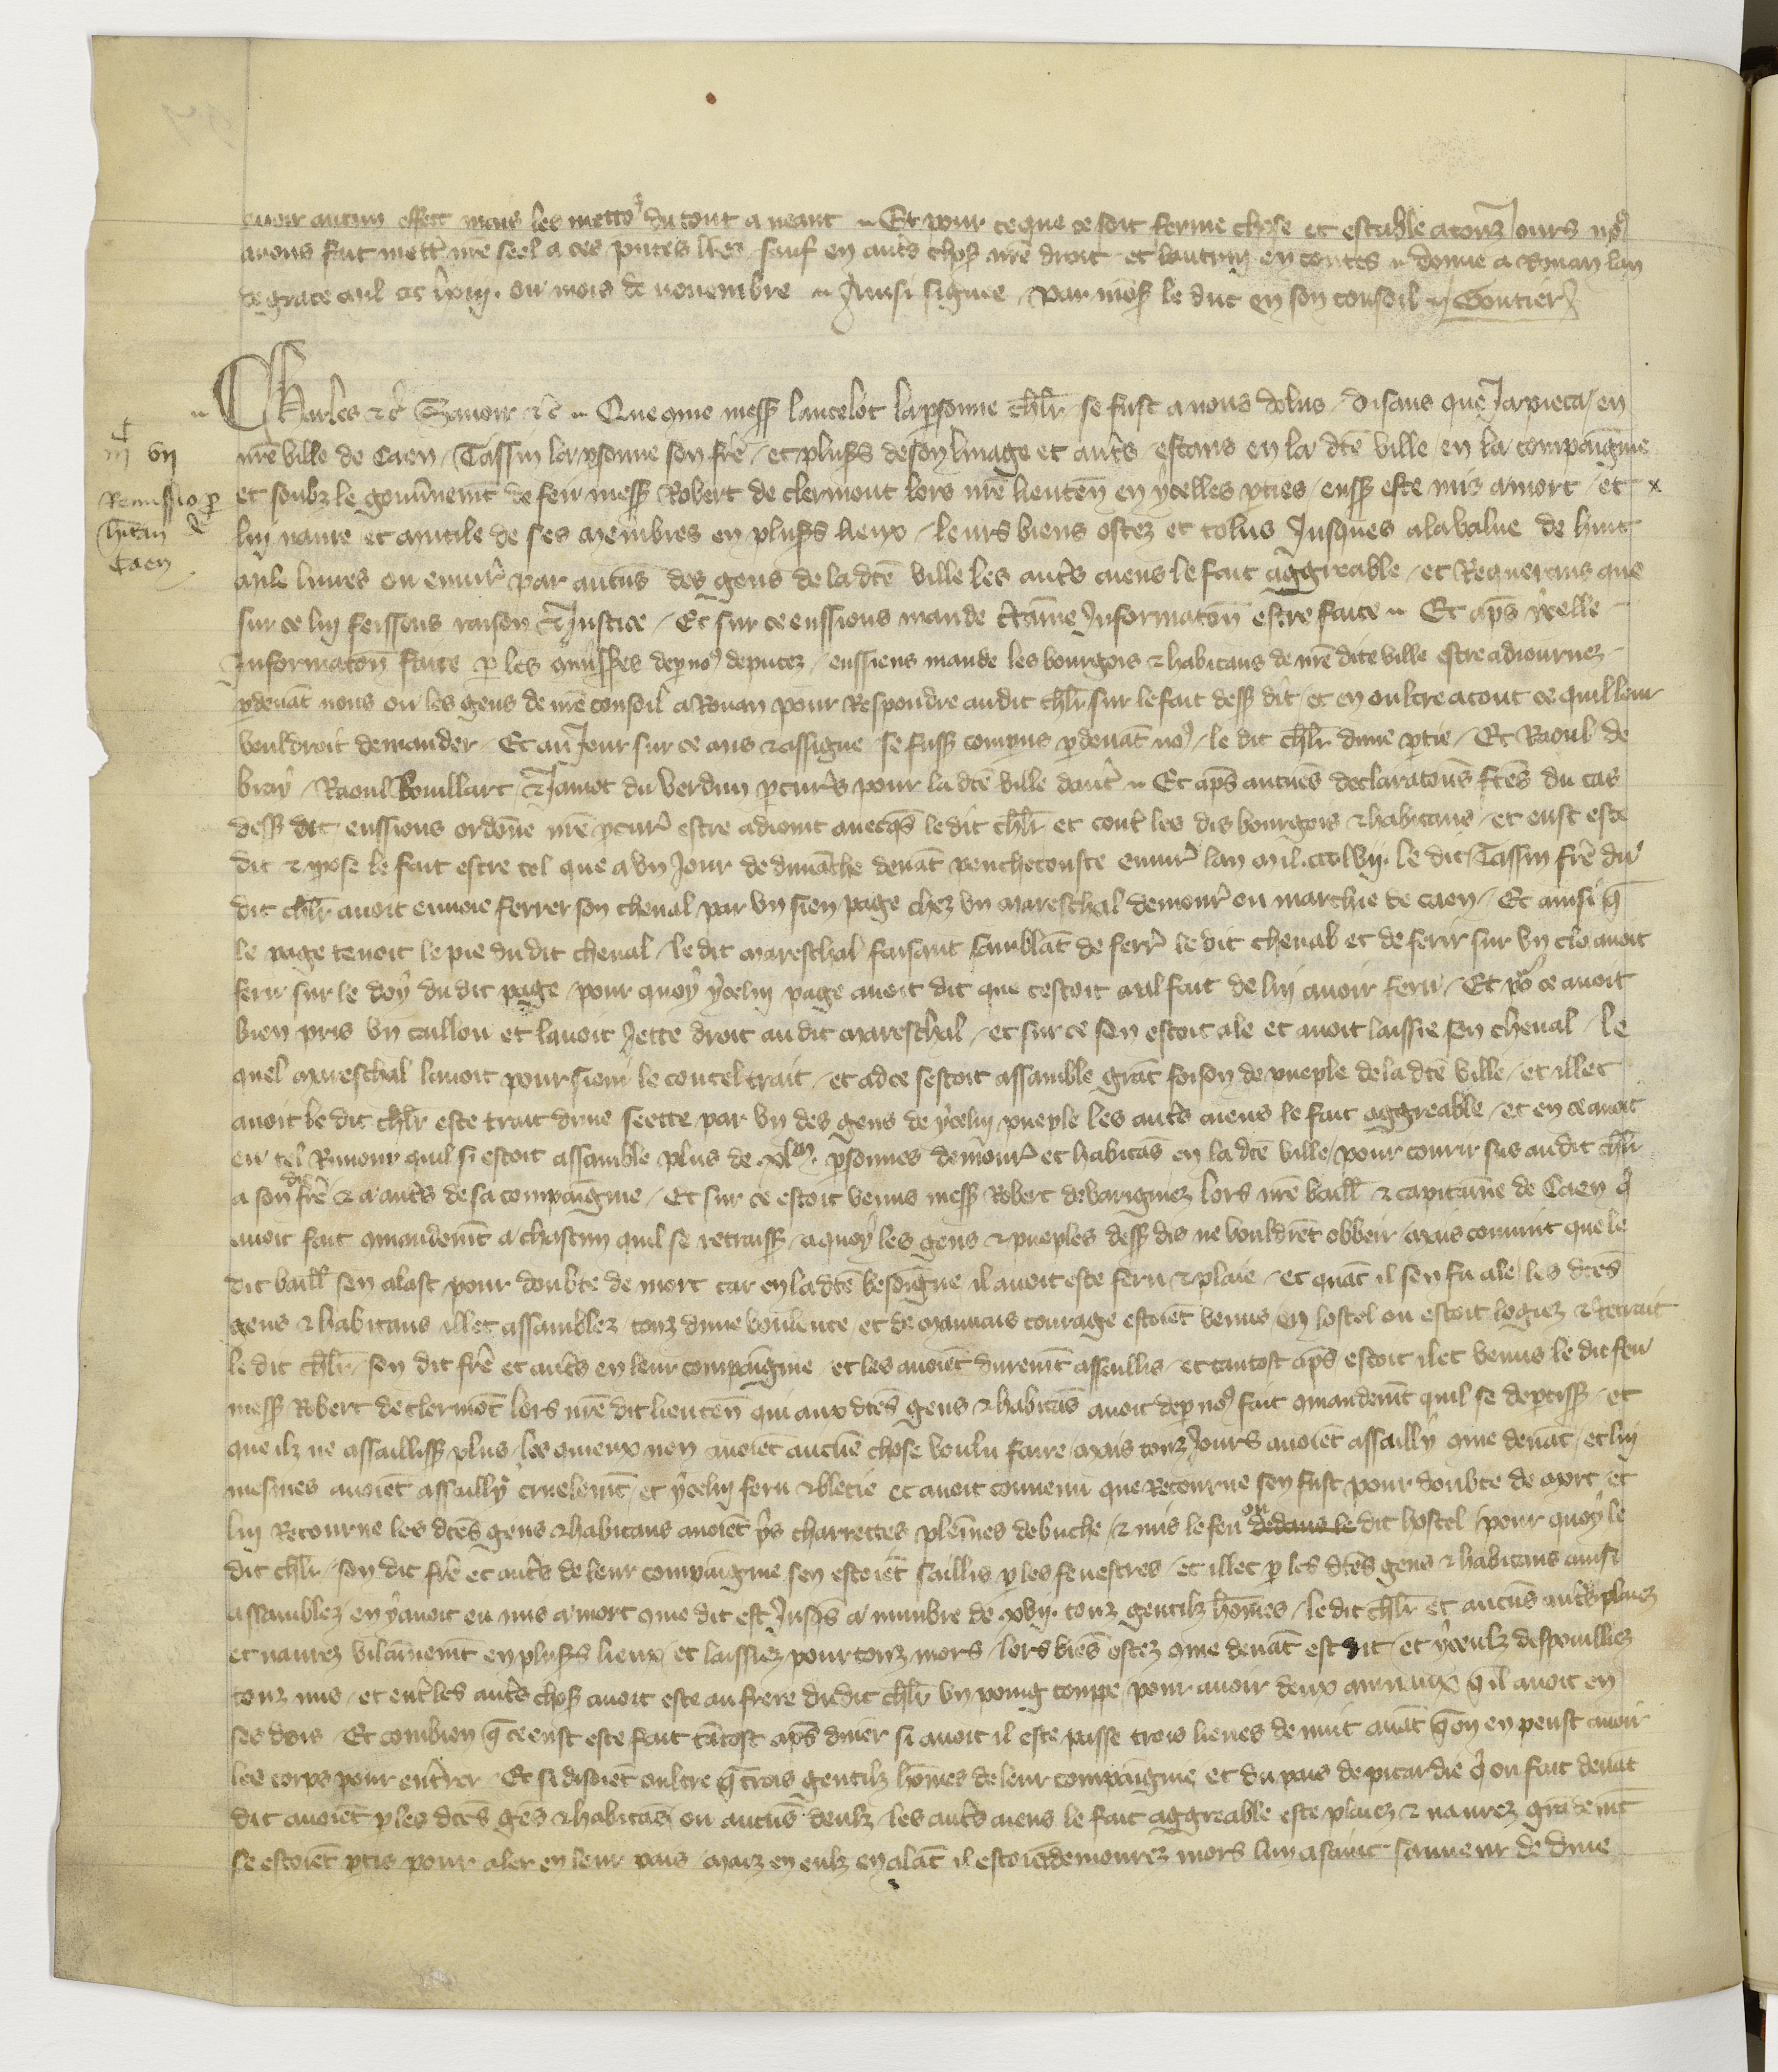 avoir aucun effect mais les mettōs du tout a neant Et pour ce que ce soit ferme chose et estable a touzjours no9
avons fait mettr̃ nr̃e seel a ces pñtes lr̃es sauf en autr̃s choß nr̃e droit et lautruy en toutes donne a Rouan lan
de grace mil ccc lxiij. ou mois de novembre Ainsi signee par monß le duc en son conseil Gontier
Charles &c̃ Savoir &c̃ Que cōme messß lancelot lapersonne chlr̃ se fust a nous dolus disans que Ja pieca en
nr̃e ville de Caen Tassin la psonne son frẽ et plusrs de son linage et autr̃s estans en la dtẽ ville en la compaignie
et soubz le gouvnemt̃ de feu messß Robert de clermont lors nr̃e lieuteñ en ycelles pties eussß este mis a mort et x
luy navre et mutile de ses membres en plusrs lieux leurs biens ostez et tolus Jusques a la value de huit
mile livres ou envir̃ par aucũs des gens de la dtẽ ville les autr̃s aiens le fait aggreable et Requerans que
sur ce luy feissons raison & Justice Et sur ce eussions mande c̃taine Informatoñ estre faite Et ap̃s ycelle
Informatoñ faite p les cōmisses de p no9 deputez eussiens mande les bourgois & habitans de nr̃e dite ville estre adiournez
p devãt nous ou les gens de nr̃e conseil a Rouan pour Respondre au dit chlr̃ sur le fait dessß dit et en oultre a tout ce quil leur
vouldroit demander Et au Jour sur ce ans & assigne se fussß compus p devãt no9 le dit chlr̃ dune ptie Et Raoul de
bray Raoul Bouillart & Jamet du Verdun pcurr̃s pour la dtẽ ville dautr̃ Et ap̃s aucunes declaratoñs ftẽs du cas
dessß dit eussions ordõne nr̃e pcur̃ estre adioint avecq̃s le dit chlr̃ et contr̃ les dis bourgois & habitans et eust este
dit & ppose le fait estre tel que a un Jour de dimãche devãt penthecouste envir̃ lan mil. ccc lvij. le dit Tassin frẽ du
dit chlr̃ avoit envoie ferrer son cheval par un sien page chez un mareschal demour̃ ou marchie de caen Et ainsi q̃
le page tenoit le pie du dit cheval le dit mareschal faisant samblãt de ferr̃ le dit cheval et de ferir sur un clo avoit
feru sur le doy du dit page pour quoy ycelui page avoit dit que cestoit mal fait de luy avoir feru Et po9 ce avoit
bien pris un caillou et lavoit Jette droit au dit mareschal et sur ce sen estoit ale et avoit laissie son cheval le
quel mareschal lavoit poursieui le coutel trait et ad ce sestoit assamble grãt foison de pueple de la dtẽ ville et illec
avoit le dit chlr̃ este trait dune seette par un des gens de ycelui pueple les autr̃s aiens le fait aggreable et en ce avoit
eu tel Rimour quil si estoit assamble plus de .xl m. psonnes demour̃ et habitãs en la dtẽ ville pour courir sus au dit chlr̃
a son dit frẽ & a autr̃s de sa compaignie Et sur ce estoit venus messß Robert de varigniez lors nr̃e baill & capitaine de Caen q̃
avoit fait cōmandemt̃ a chascun quil se retraissß a quoy les gens & pueples dessß dis ne vouldrẽt obbeir mais convint que le
dit baill sen alast pour doubte de mort car en la dtẽ besoigne il avoit este feru & plaie et quãt il sen fu ale les dtẽs
gens & habitans illec assamblez touz dune voulente et de mauvais courage estoiẽt venus en lostel ou estoit logiez & Retrait
le dit chlr̃ son dit frẽ et autr̃s en leur compaignie et les avoiẽt duremt̃ assaillis et tantost ap̃s estoit ilec venus le dit feu
messß Robert de clermõt lors nr̃e dit lieuteñ qui aux dtẽs gens & habitãs avoit de p no9 fait cōmandemt̃ quil se deptissß et
que ilz ne assaillissß plus les quieux nen avoiẽt aucũe chose voulu faire mais touzJours avoiẽt assailly cōme devãt et luy
mesmes avoiẽt assailly cruelemt̃ et ycelui feru & blecie et avoit convenu que Retourne sen fust pour doubte de mort et
luy Retourne les dtẽs gens & habitans avoiẽt pˢ charrettes pleines de buche & mis le feu ou dedans le dit hostel pour quoy le
dit chlr̃ son dit frẽ et autr̃s de leur compaignie sen estoiẽt saillis p les fenestres et illec p les dtẽs gens & habitans ainsi
assamblez en y avoit eu mis a mort cōme dit est Jusq̃s a numbre de .xvij. touz gentilz hões le dit chlr̃ et aucũs autr̃s plaiez
et navrez vilainemt̃ en plusrs lieux et laissiez pour touz mors lors biẽs ostez cōme devãt est dit et yceulz despouilliez
touz nus et entr̃ les autr̃s choß avoit este au frere du dit chlr̃ un poing coppe pour avoir deux anneaux q̃ il avoit en
ses dois Et combien q̃ ce eust este fait tãtost ap̃s disner si avoit il este passe trois lieues de nuit avãt q̃ on en peust avoir
les corps pour entr̃rer Et si disoiẽt oultre q̃ trois gentilz hões de leur compaignie et du pais de picardie q̃ ou fait devãt
dit avoiẽt p les dtẽs gẽs & habitãs ou aucũs deulz les autr̃s aiens le fait aggreable este plaiez & navrez grãdemt̃
se estoiẽt ptis pour aler en leur pais maiz en eulz en alãt il estoiẽt demourez mors lun a saint sauveur de dive
vij
Remissio p
hitan de
Caen